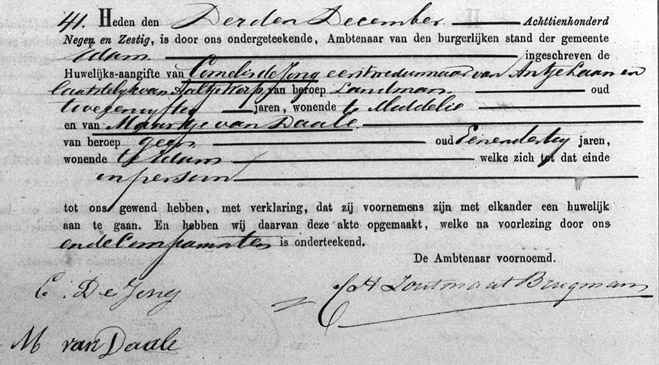 41. Heden den Derden December Achttienhonderd
Negen en Zestig, is door ons ondergeteekende, Ambtenaar van den burgerlijken stand der gemeente
Edam ingeschreven de
Huwelijks-aangifte van Cornelis de Jong eerst weduwnaar van Antje Laan en
laatstelijk van Aaltje Korp van beroep Landman oud
twee en vijftig jaren, wonende te Middelie
en van Maartje van Daale
van beroep geen oud Eenendertig jaren,
wonende te Edam welke zich tot dat einde
in persoon
tot ons gewend hebben, met verklaring, dat zij voornemens zijn met elkander een huwelijk
aan te gaan. En hebben wij daarvan deze akte opgemaakt, welke na voorlezing door ons
en de Comparanten is onderteekend.
De Ambtenaar voornoemd.
C. De Jong
CH Zoutmaat Brugman
M van Daale